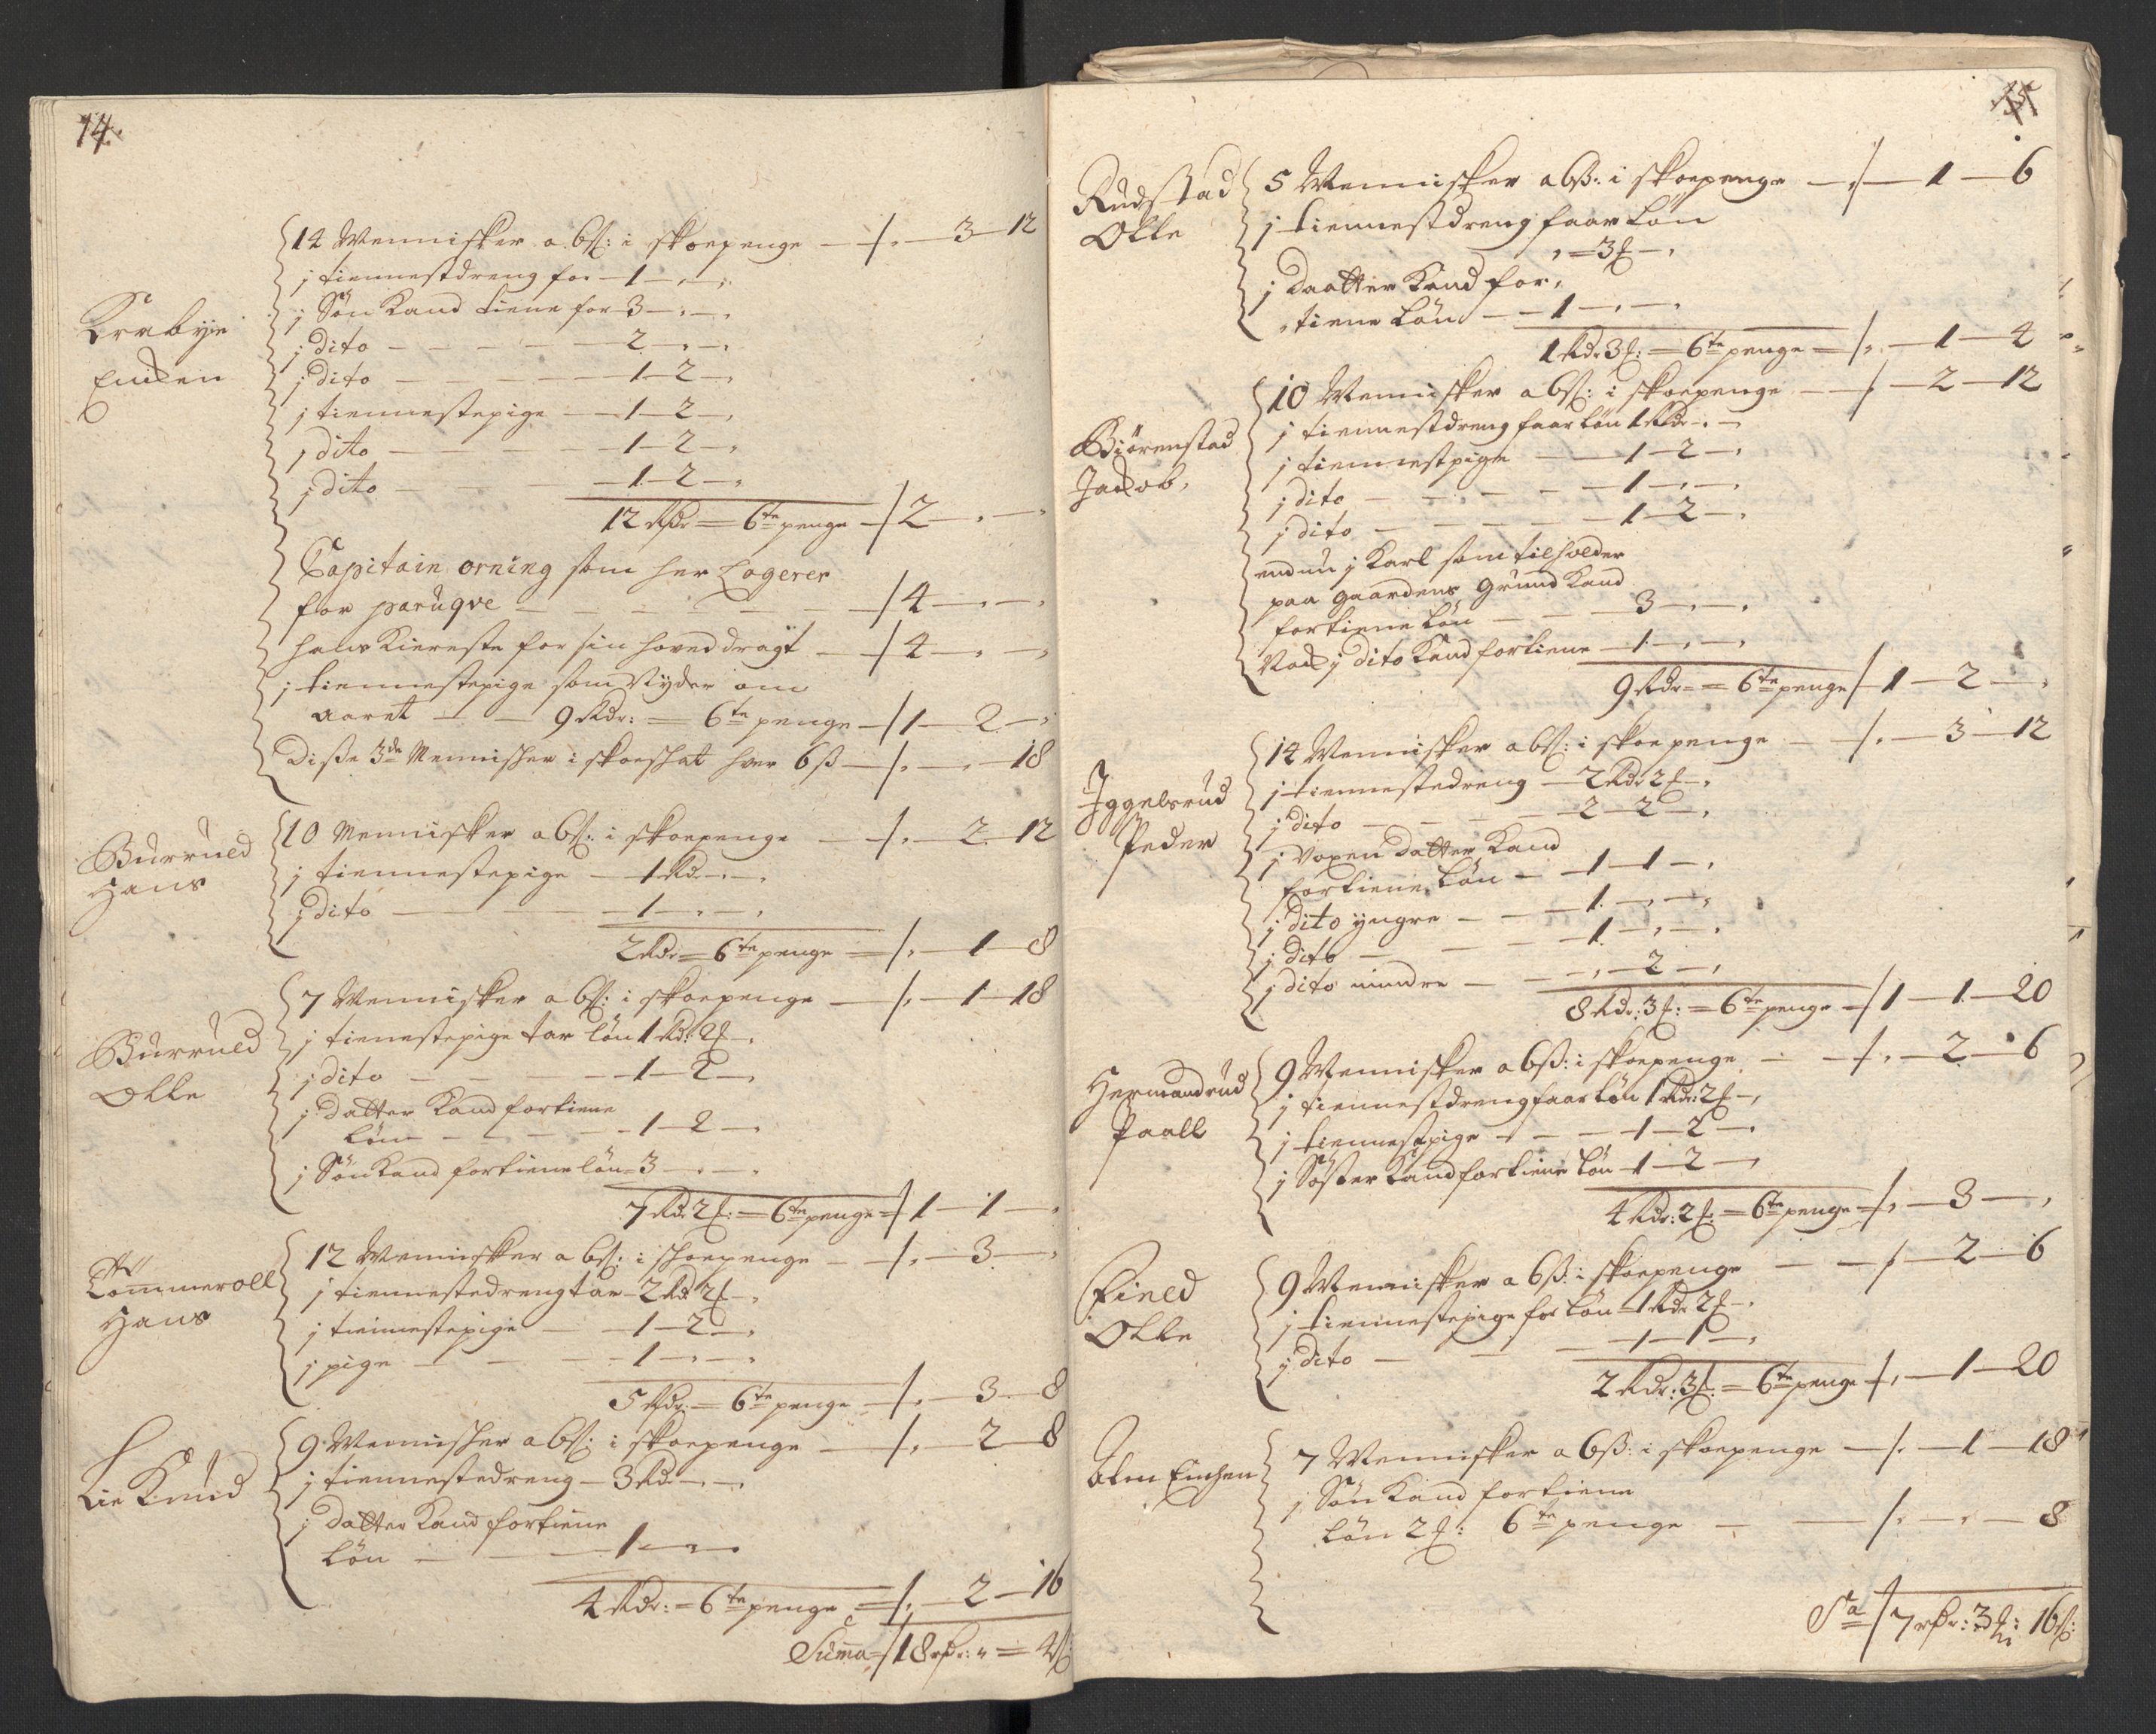 14.
14 Mennisker a 6ß: i skoepenge — /. — 3 — 12
j tiennestdreng for — 1 — " — "
j Søn Kand tiene for 3 — " — "
j dito — 2 — " — "
Krabÿe
Enken
j dito — 1 — 2 — "
j tiennestepige — 1 — 2 — "
j dito — 1 — 2 — "
j dito — 1 — 2 — "
12 Rdr = 6te penge — / 2 — " — "
Capitain orning som her Logerer
for parüqve — / 4 — " — "
hans Kiereste for sin hoved dragt — / 4 — " — "
j tiennestepige som Nÿder om
aaret — 9 Rdr: = 6te penge — / 1 — 2 — "
Diße 3de Mennisker i skoeskat hver 6ß — /. — " — 18
Burrueld
Hans
10 Mennisker a 6ß: i skoepenge — /. — 2 — 12
j tiennestepige — 1 Rd — " — "
j dito — 1 — " — "
2 Rdr = 6te penge — /. — 1 — 8
Burrueld
Olle
7 Mennisker a 6ß: i skoepenge — /. — 1 — 18
j tienestepige tar løn 1 Rd: 2 — "
j dito — 1 — 2 — "
j datter Kand fortiene
løn — 1 — 2 — "
j Søn Kand fortiene løn = 3 — " — "
7 Rd 2: = 6te penge = / 1 — 1 — "
Lommeroll
Hans
12 Mennisker a 6ß: i skoepenge — /. — 3 — "
j tiennestedreng tar — 2 Rd 2 — "
j tiennestepige — 1 — 2 — "
j pige — 1 — " — "
5 Rdr: = 6te penge — /. — 3 — 8
Lie Knud
9 Mennisker a 6ß: i skoepenge — /. — 2 — 8
j tiennestedreng — 3 Rd — " — "
j datter Kand fortiene
løn — 1 — " — "
4 Rdr: = 6te penge = /. — 2 — 16
Suma = / 18 rdr: " = 4ß
15
Rudstad
Olle
5 Mennisker a 6ß: i skoepenge — /. — 1 — 6
j tiennestdreng faar Løn
" — 3 — "
j Daatter Kand for,
tiene Løn — 1 — " — "
1 Rdr 3: = 6te penge = /. — 1 — 4
Biörenstad
Jacob,
10 Mennisker a 6ß: i skoepenge — / — 2 — 12
j tiennestdreng faar Løn 1 Rdr — " —
j tiennestpige — 1 — 2 — "
j dito — 1 — " — "
j dito — 1 — 2 — "
endnu j Karl som tilholder
paa gaardens Grund Kand
fortiene Løn — 3 — " — "
Noch j dito Kand fortiene — 1 — " — "
9 Rdr = 6te penge / 1 — 2 — "
Jggelsrud
Peder
14 Mennisker a 6ß: i skoepenge — /. — 3 — 12
j tiennestedreng — 2 Rdr 2 — "
j dito — 2 — 2 — "
j Voxen datter Kand
fortiene Løn — 1 — 1 — "
j dito ÿngre — 1 — " — "
j dito — 1 — " — "
j dito mindre — " — 2 — "
8 Rdr: 3: = 6te penge — / 1 — 1 — 20
Hermandrud
Paall
9 Mennisker a 6ß: i skoepenge — /. — 2 — 6
j tiennestdreng faar Løn 1 Rdr: 2 — "
j tiennestpige — 1 — 2 — "
j Søster Kand fortiene Løn — 1 — 2 — "
4 Rdr: 2: = 6te penge — /. — 3 — "
Eineld
Olle
9 Mennisker a 6ß: i skoepenge — / — 2 — 6
j tiennestepige for Løn — 1 Rdr 2 — "
j dito — 1 — 1 — "
2 Rdr: 3: = 6te penge — /. — 1 — 20
Alm Enchen
7 Mennisker a 6ß: i skoepenge — /. — 1 — 18
j Søn Kand fortiene
Løn 2: 6te penge — /. — " — 8
Sa / 7 rdr: 3: 16ß: